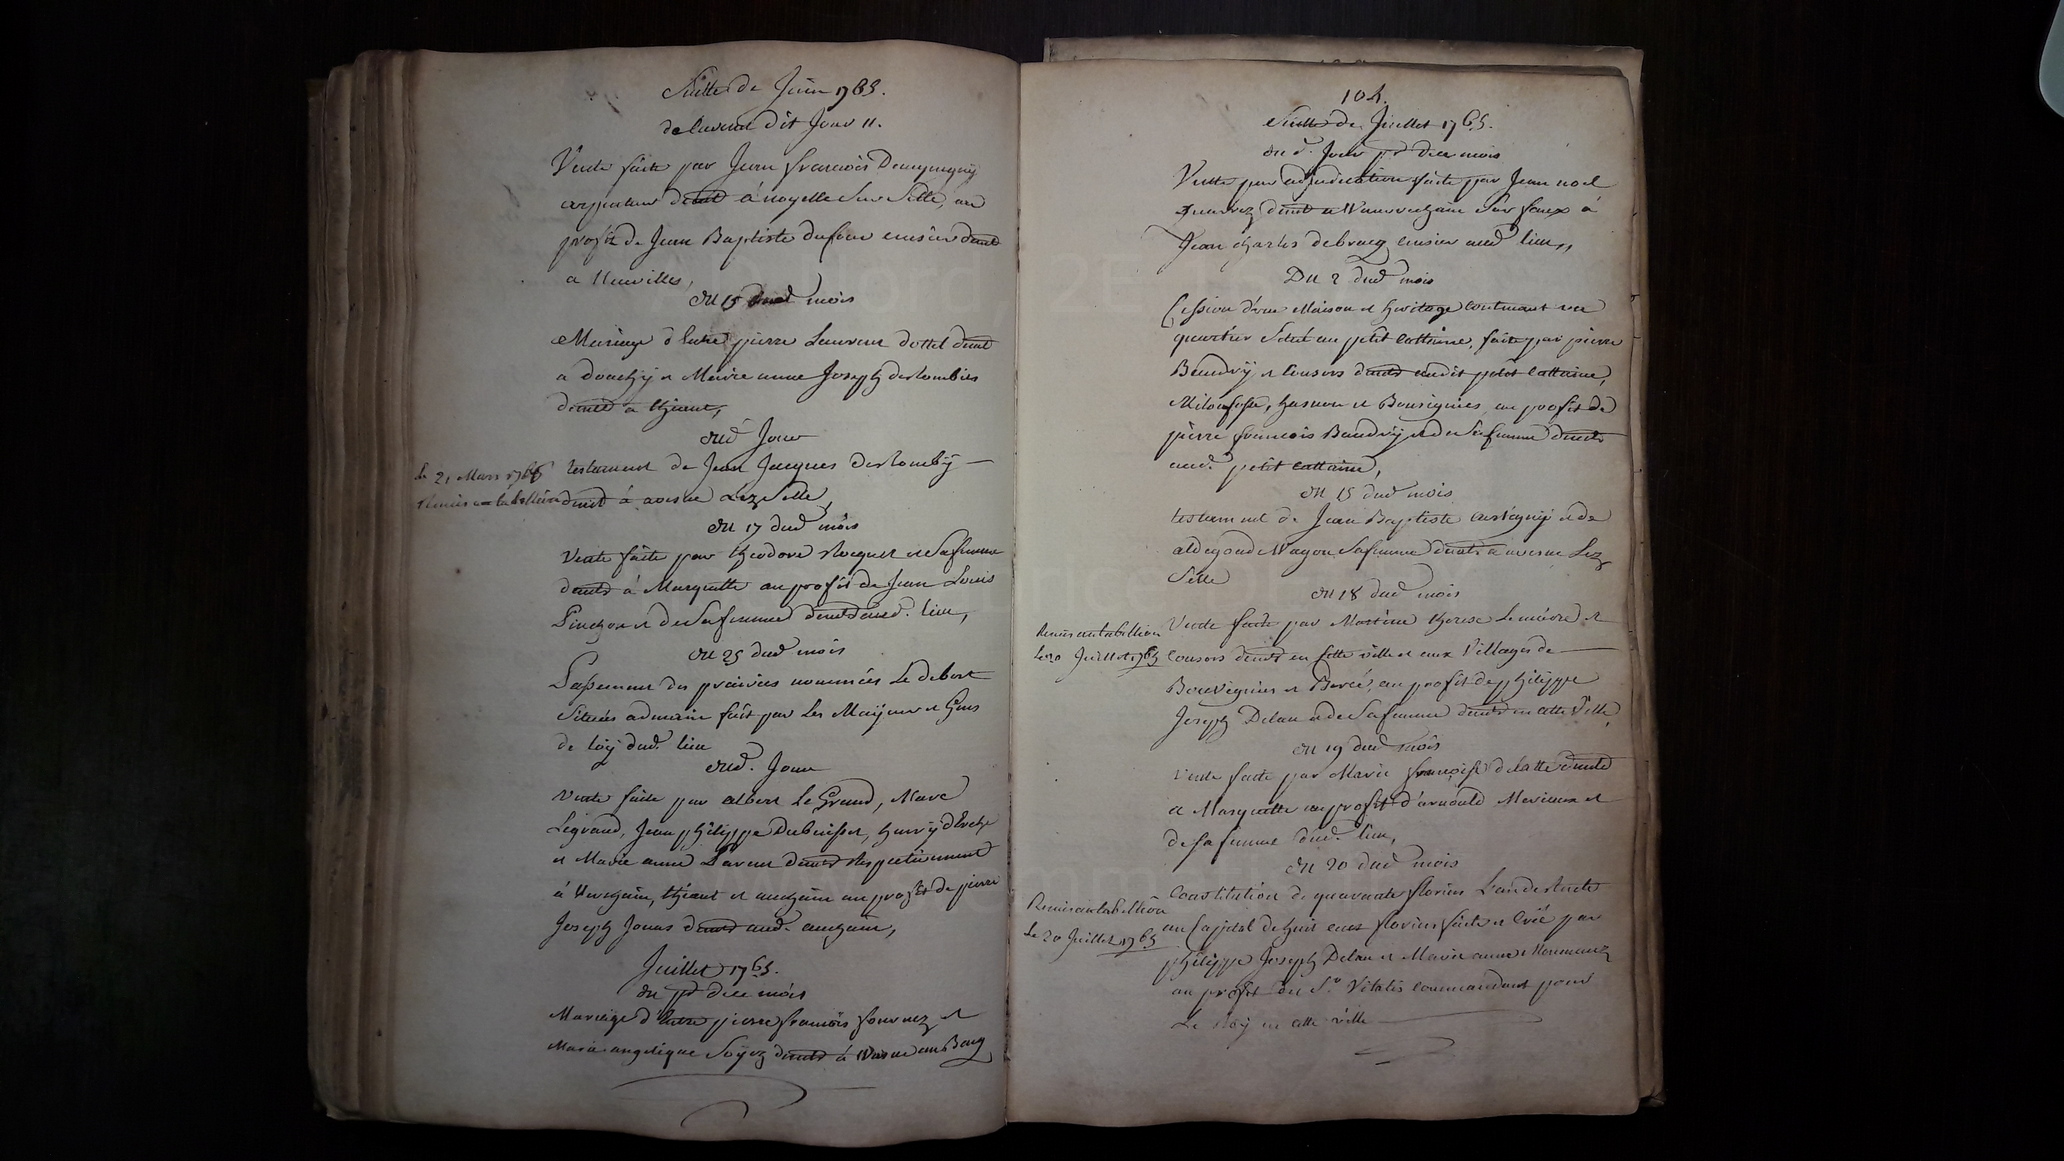 Suitte de Juin 1765.
de lavend dit Jour 11.
Vente faite par Jean francois
arpenteur demt à noyelle Sur Selle, au
profit de Jean Baptiste dufour censier demt
a Neuvilles,
Du 15 dud mois
Mariage d'Entre pierre Laurent dottel demt
a douchÿ et Marie anne Joseph deslombies
demte a thiant,
Dud Jour
le 21 Mars testament de Jean Jacques deslombÿ
Remis au tabellion demt à avesne Lez Selle,
Du 17 dud mois
Vente faite par theodore Rocquet et Sa femme
demts à Marquette au profit de Jean Louis
Pinchon et de Sa femme demts aud. lieu,
Du 25 dud mois
Passement des prairies nommées Le debort
Situées fait par Les Maÿeur et Gens
de loÿ dud. lieu
Dud. Jour
Vente faite par albert le Grand, Marc
Legrand, Jean philippe Dubuisson,
et Marie anne demts Respectivement
à Verchain, thiant et auchain au profit de pierre
Joseph Jonas demt aud. auchain,
Juillet 1765.
Du pr dud mois
Mariage d'Entre pierre francois fournez et
Marie angelique Soÿez demts à Wasne au Bacq
104.
Suitte de Juillet 1765.
Du d. Jour pr dud mois
Vente par adjudication faite par Jean noel
demt a Sur faux a
Jean Charles debracq censier aud lieu,
Du 2 dud mois
Cession d'une Maison et heritage contenant un
quartier Scitué au petit Cattiaine, faite par pierre
Baudrÿ et Consors demts audit petit Cattiaine,
Millonfosse, hasnon et Bousignies, au profit de
pierre francois Baudrÿ et de Sa femme demts
aud. petit Cattiaine,
Du 15 dud mois
testament de Jean Baptiste et de
aldegonde Wagon Sa femme demts a avesne Lez
Selle
Du 18 dud mois
Remis au tabellion Vente faite par Martine therese Lemievre et
Le 20 Juillet 1765 Consors demts en Cette ville et aux Villages de
Bouvignies et au profit de philippe
Joseph Delau et de Sa femme demts en cette Ville,
Du 19 dud mois
Vente faite par Marie françoise delatte demte
a Marquette au profit d'arnould et
de Sa femme dud. lieu,
Du 20 dud mois
Remis au tabellion Constitution de quarante florins L'an de Rente
Le 20 Juillet 1765 au Capital de huit cens florins faite et Créé par
philippe Joseph Delau et Marie anne
au profit du Sr. Vitalis commandant pour
Le Roÿ en cette ville